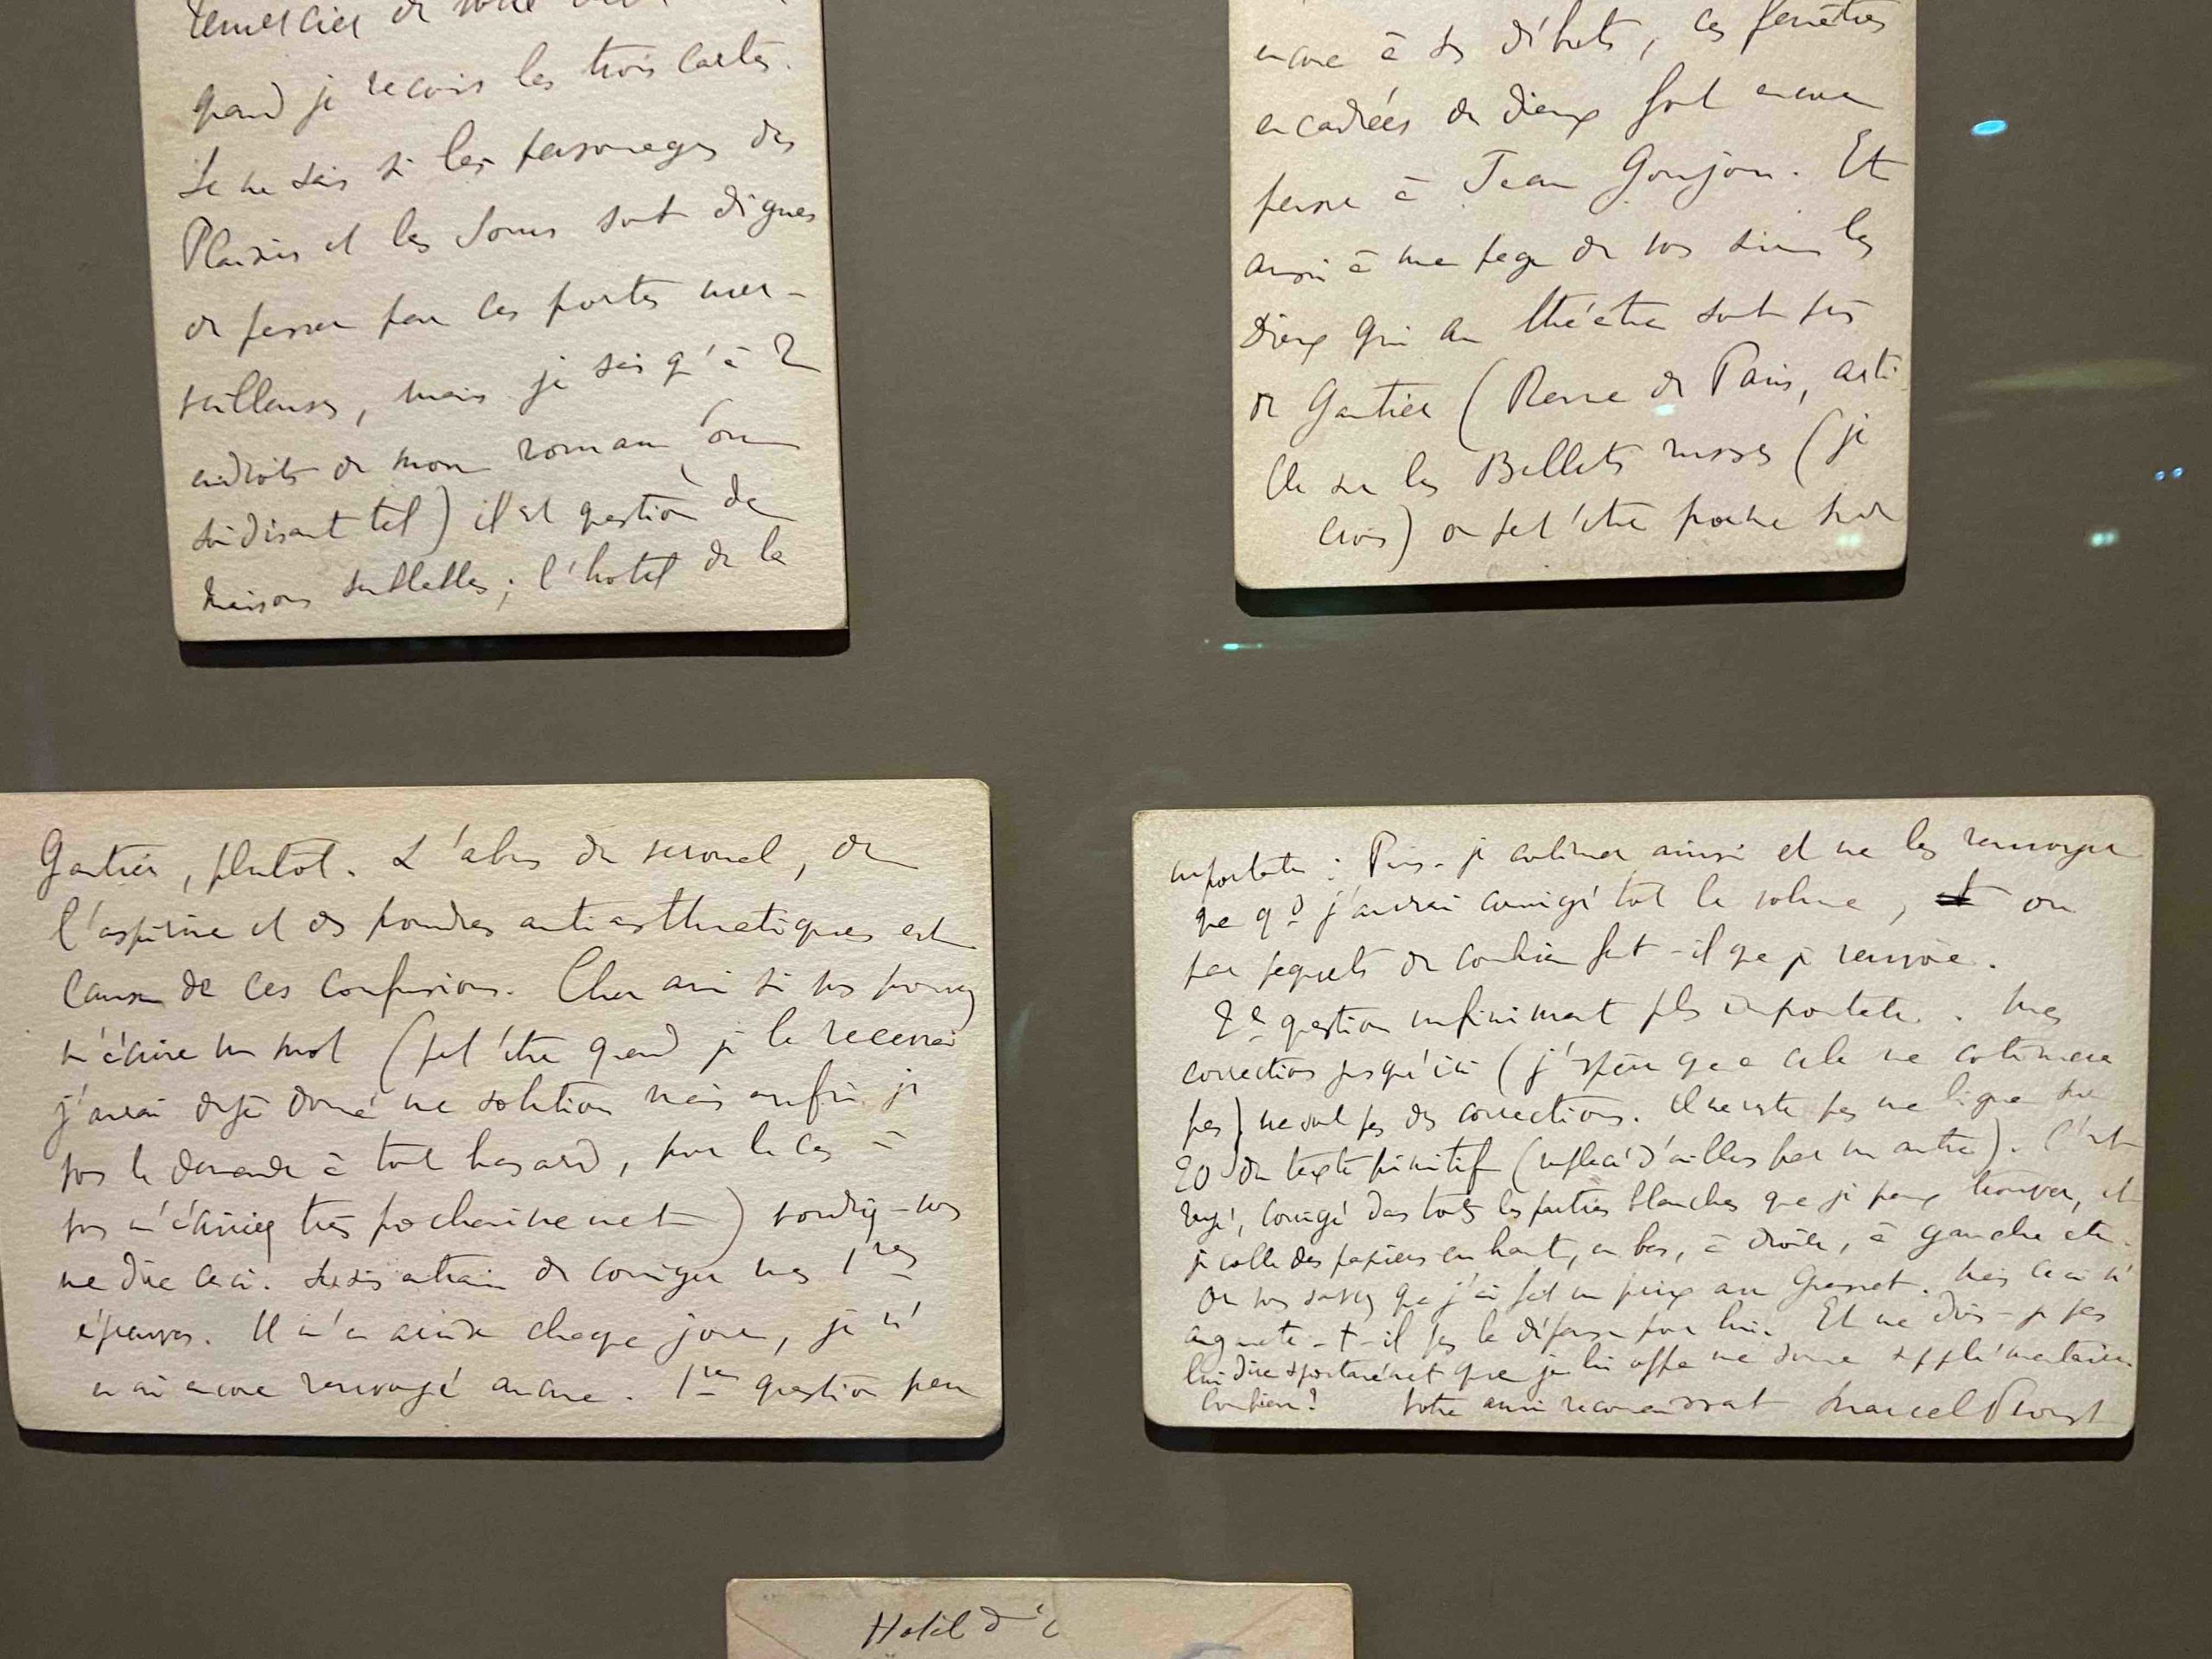 remercier de votre
quand je recois les trois cartes.
Je ne sais si les personnages des
Plaisirs et les Jours sont dignes
de passer par ces portes mer-
veilleuses, mais je sais q'à 2
endroits de mon roman (ou
soi disant tel) il est question de
maisons semblables ; l'hotel de la
encore à ses débuts, ces fenêtres
encadrées de dieux font encore
penser à Jean Goujon. Et
aussi à une page de vos sur les
Dieux qui au théâtre sont
de Gautier (Revue de Paris, arti
cle sur les Ballets russes (je
crois) ou peut'être poème sur
Gautier, plutot. L'abus du veronal, de
l'aspirine et des poudres anti asthmatiques est
cause de ces confusions. Cher ami si vous pouvez
m'écrire un mot (peut'être quand je le recevrai
j'aurai déjà donné une solution mais enfin je
vous le demande à tout hasard, pour le cas où
vous m'écririez très prochainement) voudriez-vous
me dire ceci. Je suis en train de corriger mes 1res
épreuves. Il m'en arrive chaque jour, je n'
en ai encore renvoyé aucune. 1re question peu
importante : Puis-je continuer ainsi et ne les renvoyer
que qd j'aurai corrigé tout le volume, ou
par paquets de combien faut-il que je renvoie.
2e question infiniment plus importante. Mes
corrections jusqu'ici (j'espère que cela ne continuera
pas) ne sont pas des corrections. Il ne reste pas une ligne sur
20 du texte primitif (remplacé d'ailleurs par un autre). C'est
rayé, corrigé dans toutes les parties blanches que je peux trouver, et
je colle des papiers en haut, en bas, à droite, à gauche etc.
Or vous savez que j'ai fait un prix avec Grasset. Mais ceci n'
augmente-t-il pas la dépense pour lui. Et ne dois-je pas
lui dire spontanément que je lui offre une somme supplémentaire
combien? Votre ami reconnaissant Marcel Proust
Hotel d